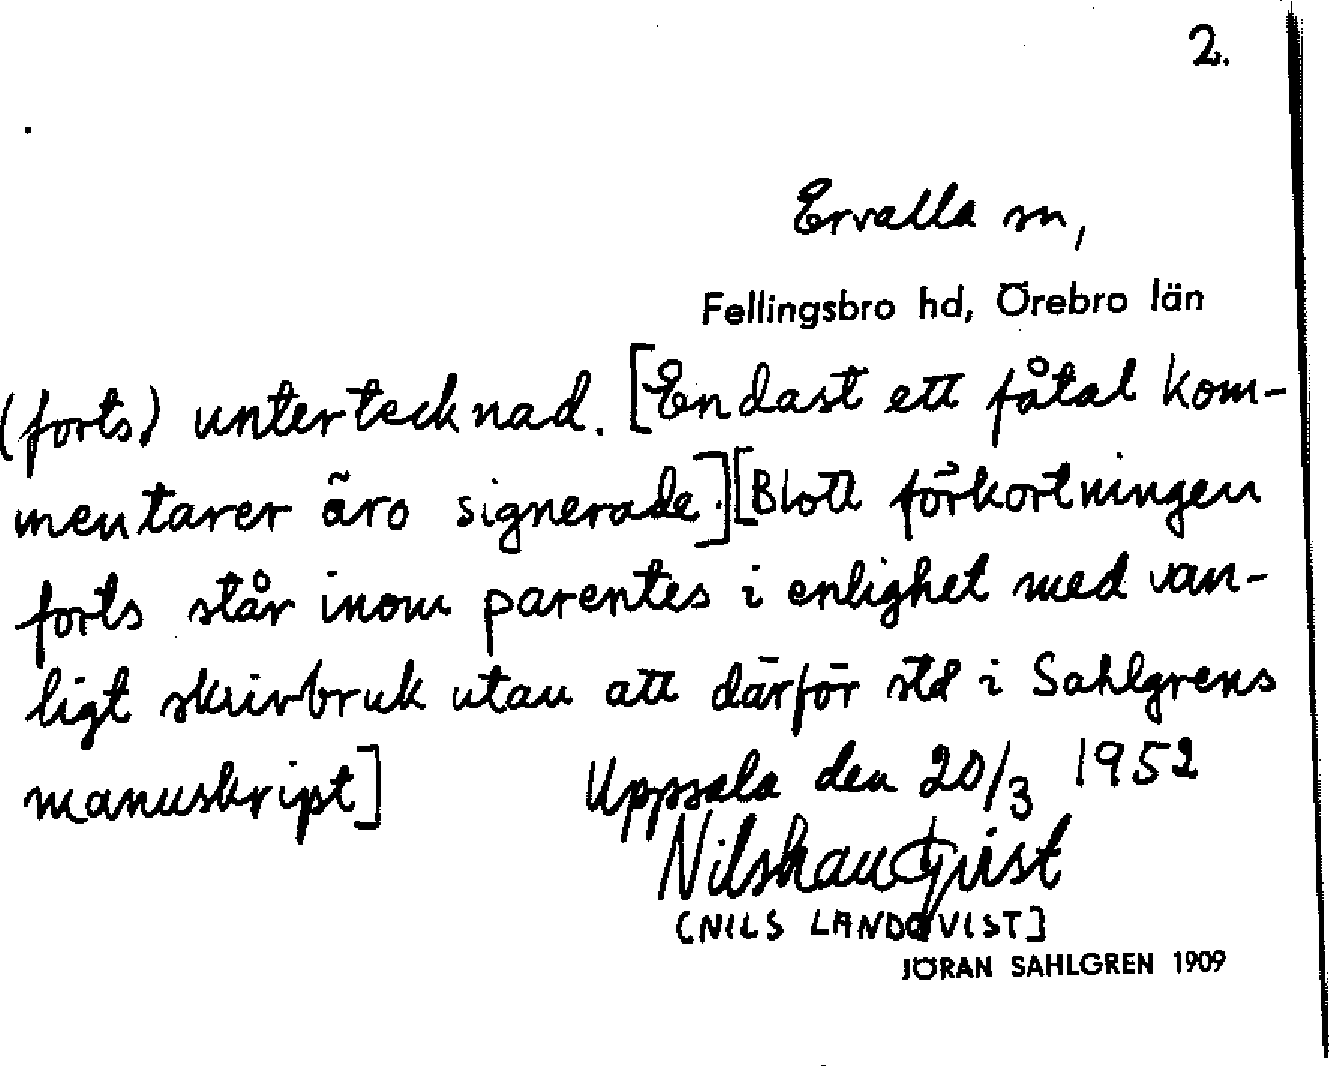 2.
Ervalla sn,
Fellingsbro hd, Örebro län
(forts) untertecknad. [Endast ett fåtal kom-
mentarer äro signerade.][Blott förkortningen
forts står inom parentes i enlighet med van-
ligt skrivbruk utan att därför stå i Sahlgrens
manuskript]
Uppsala den 20/3 1952
Nils Landqvist
[NILS LANDQVIST]
JÖRAN SAHLGREN 1909